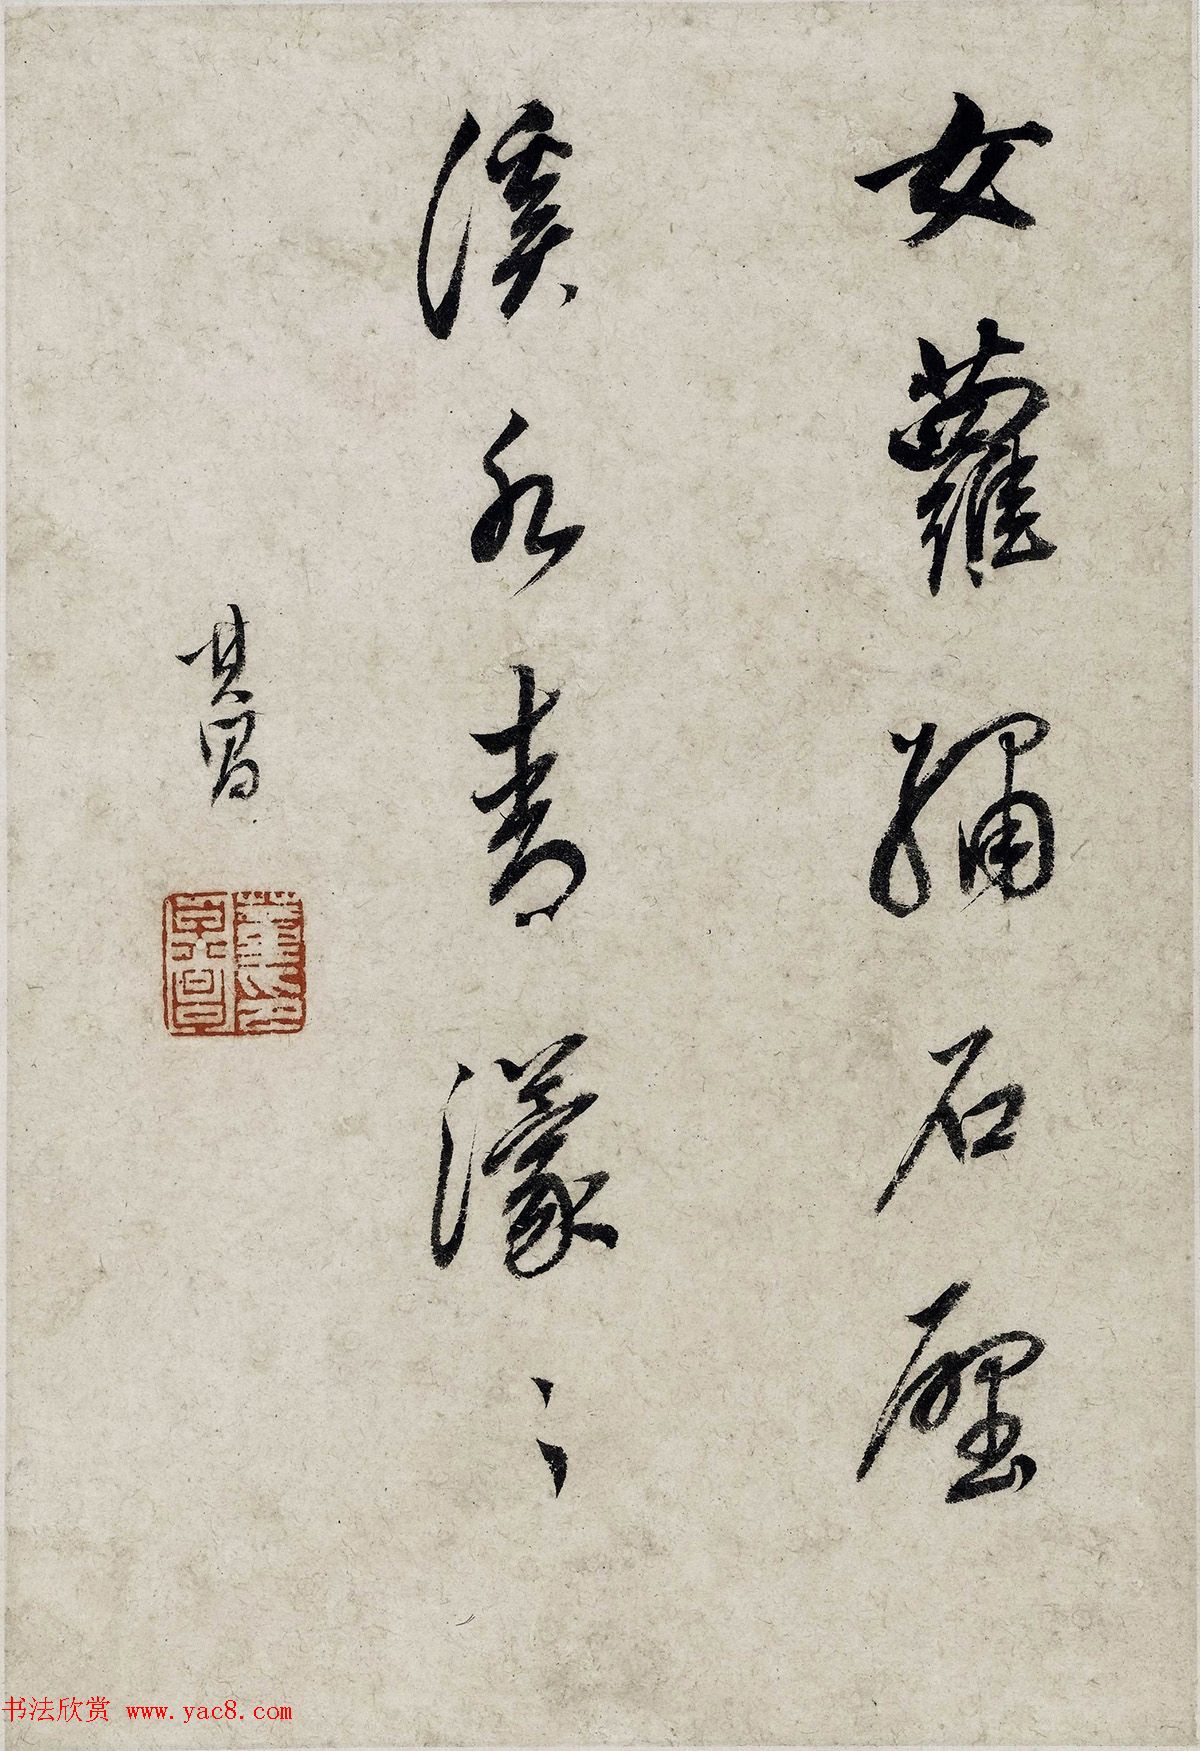 女蘿繡石壁
溪水青濛〻
其昌
董其昌
书法欣赏 www.yac8.com